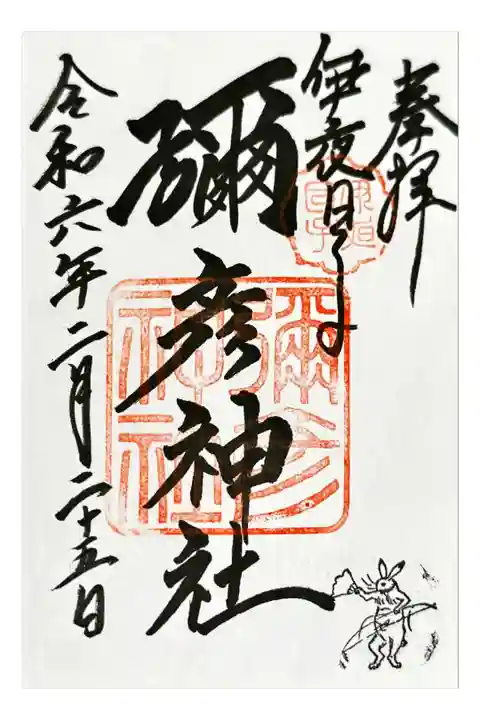 奉拝
伊夜日子
彌彦神社
彌彦神社
令和六年二月二十五日